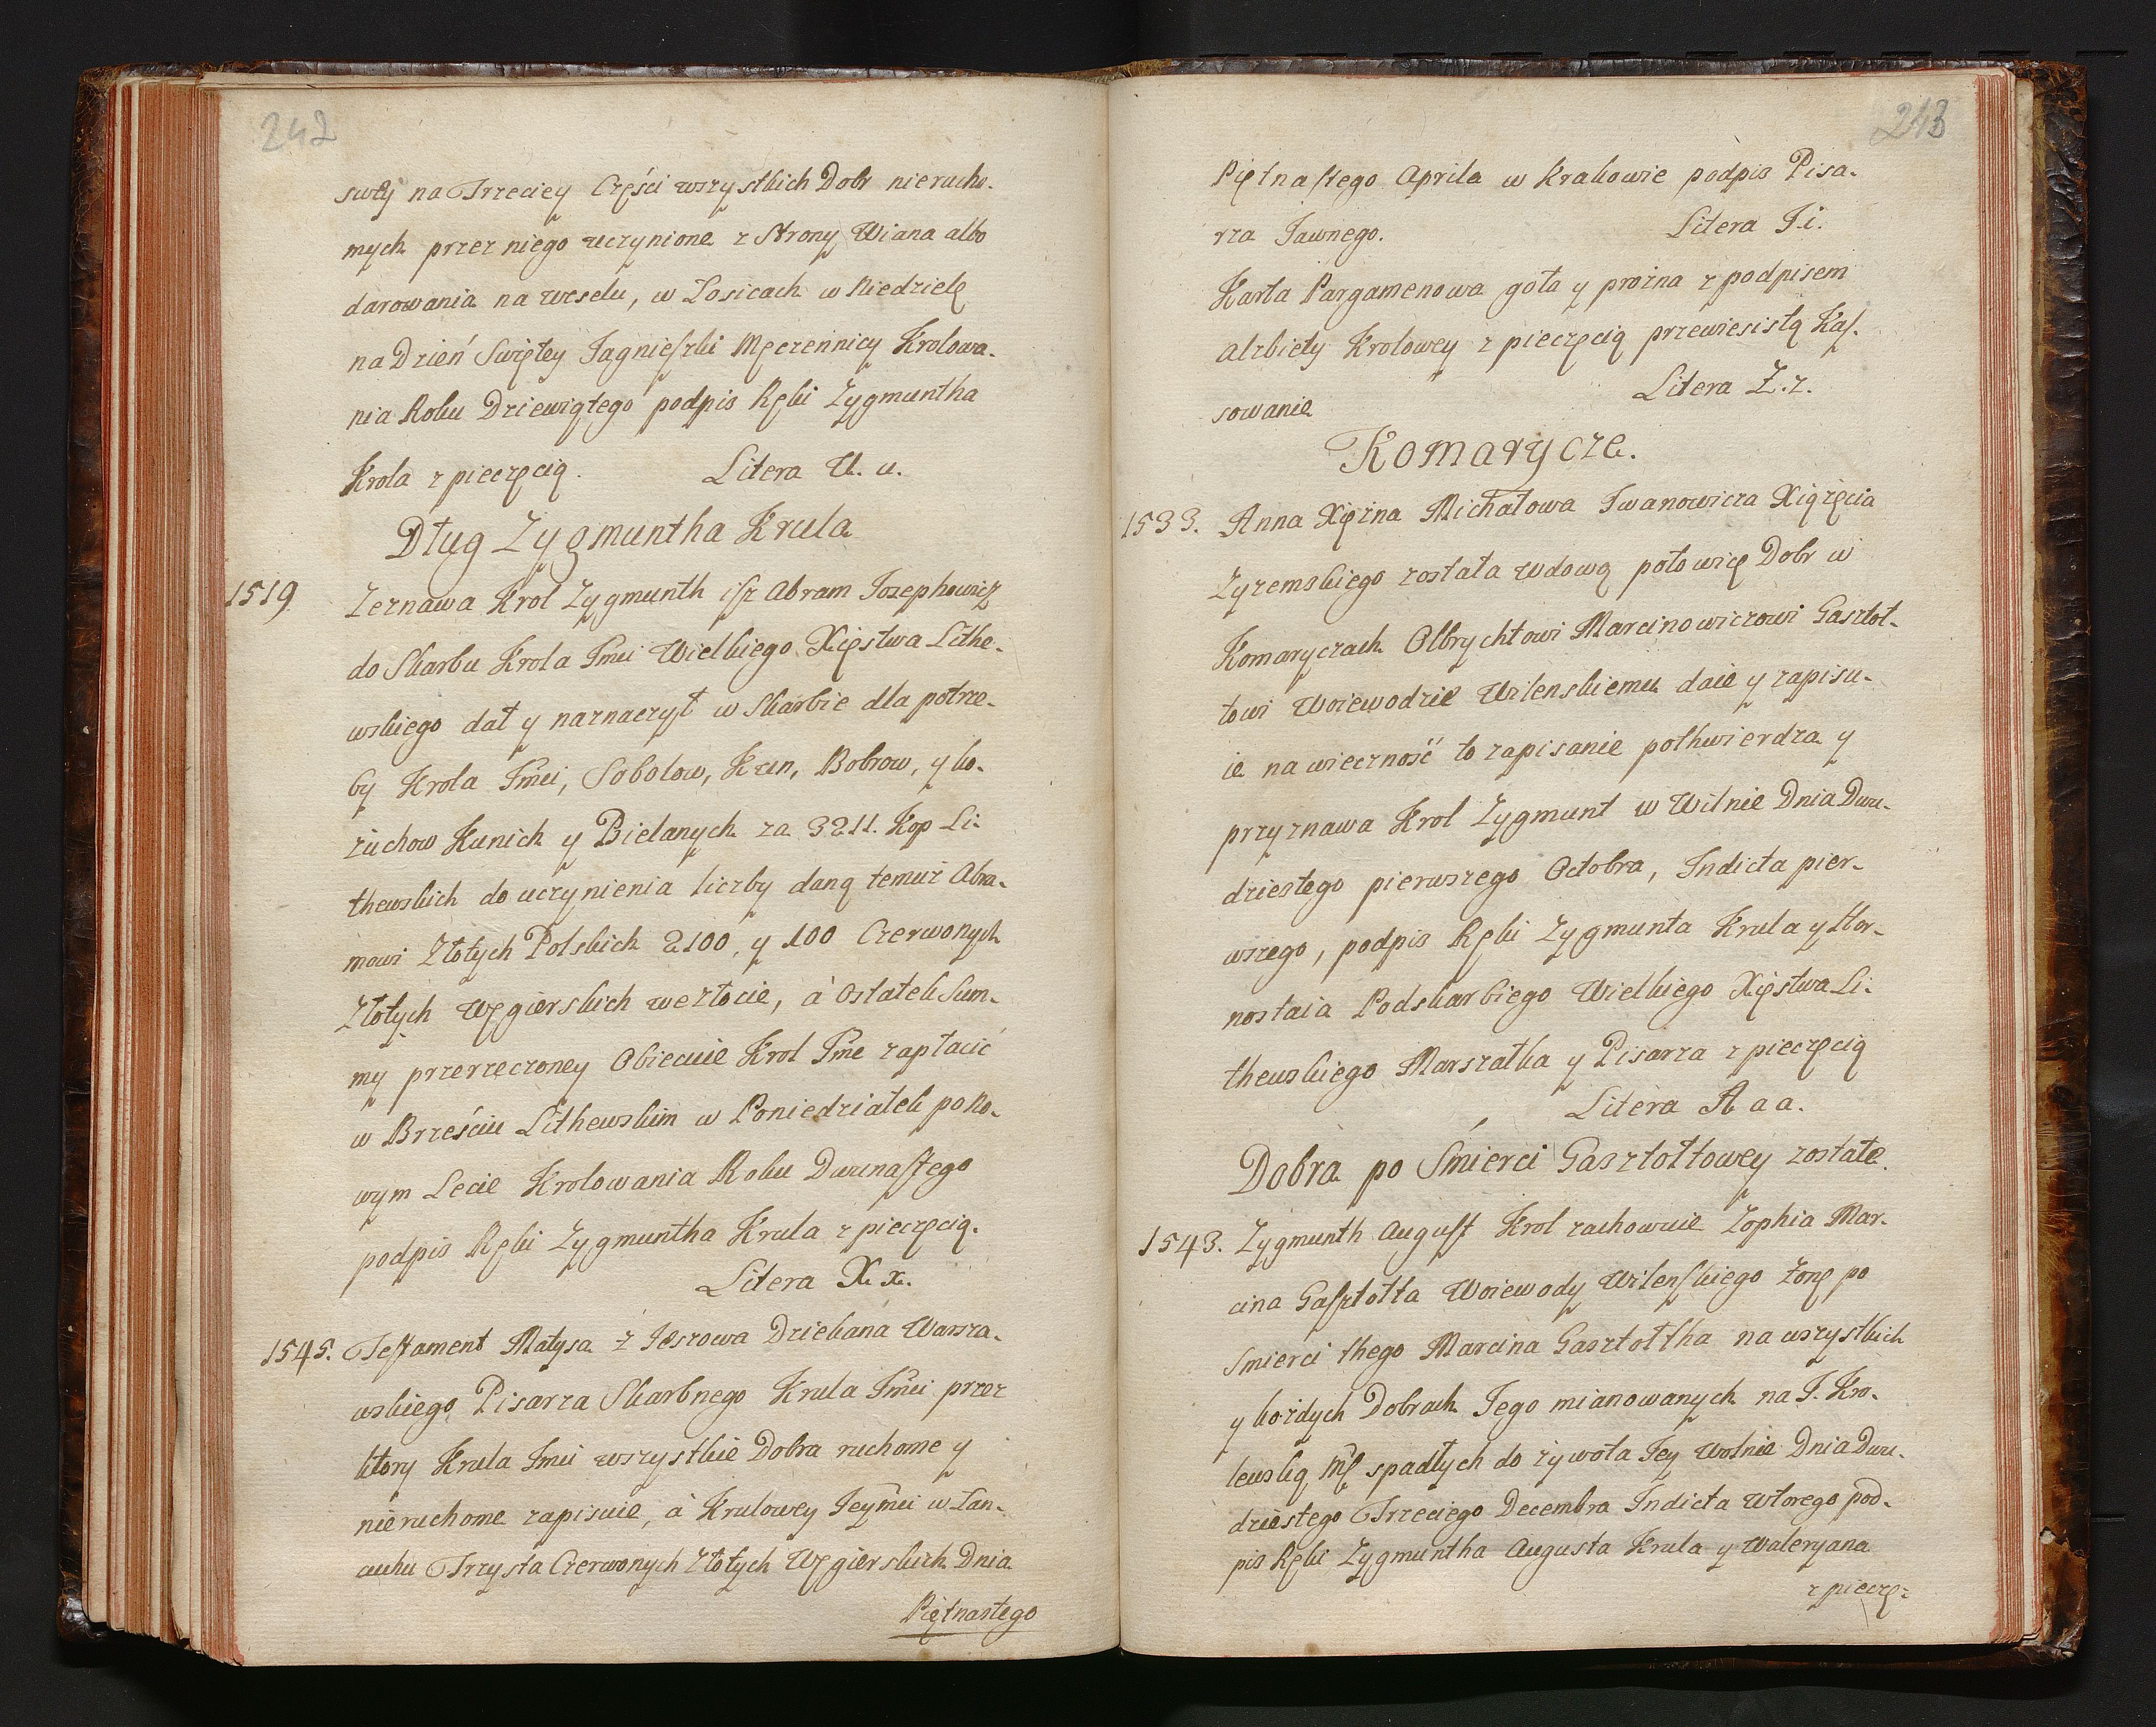 242
swey na Trzeciey Częsci wszystkich Dobr nierucho-
mych przez niego uczynione z Strony Wiana albo
darowania na weselu, w Łosicach w Niedzielę
na Dzień Swiętey Jagnieszki Męczennicy Krolowa-
nia Roku Dziewiątego podpis Ręki Zygmuntha
Krola z pieczęcią. Litera U. u.
Dług Zygmuntha Krula
1519 Zeznawa Krol Zygmunth isz Abram Jozephowicz
do Skarbu Krola Jmci Wielkiego Xięstwa Lithe-
wskiego dał y naznaczył w Skarbie dla potrze-
by Krola Jmci, Sobolow, Kun, Bobrow, y ko-
żuchow Kunich y Bielanych za 3211. Kop Li-
thewskich do uczynienia liczby daną temuż Abra-
mowi Złotych Polskich 2100, y 100 Czerwonych
Złotych Węgierskich we złocie, á Ostatek Sum-
my przerzeczoney Obiecuie Krol Jmc zapłacić
w Brześciu Lithewskim w Poniedziałek po No-
wym Lecie Krolowania Roku Dwunastego
podpis Ręki Zygmuntha Krula z pieczęcią.
Litera X. x.
1545. Testament Matysa z Jeszowa Dziekana Warsza-
wskiego Pisarza Skarbnego Krula Jmci przez
ktory Krula Jmci wszystkie Dobra ruchome y
nieruchome zapisuie, á Krulowey Jeymci w Łan-
cuhu Trzysta Czerwonych Złotych Węgierskich Dnia
Piętnastego
243
Piętnastego Aprila w Krakowie podpis Pisa-
rza Jawnego. Litera J.i.
Karta Pargamenowa goła y prożna z podpisem
Alzbiety Krolowey z pieczęcią przewiesistą Kas-
sowanie Litera Z. z.
Komarycze.
1533. Anna Xiężna Michałowa Iwanowicza Xiążęcia
Zyzemskiego została wdową połowicę Dobr w
Komaryczach Olbrychtowi Marcinowiczowi Gasztoł-
towi Woiewodzie Wilenskiemu daie y zapisu-
ie na wieczność to zapisanie pothwierdza y
przyznawa Krol Zygmunt w Wilnie Dnia Dwu-
dziestego pierwszego Octobra, Indicta pier-
wszego, podpis Ręki Zygmunta Krula y Hor-
nostaia Podskarbiego Wielkiego Xięstwa Li-
thewskiego Marszałka y Pisarza z pieczęcią
Litera A a a.
Dobra po Śmierci Gasztołtowey zostałe.
1543. Zygmunth August Krol zachowuie Zophia Mar-
cina Gasztołta Woiewody Wilenskiego Żonę po
Smierci thego Marcina Gasztołtha na wszystkich
y kożdych Dobrach Jego mianowanych na J. Kro-
lewską Mść spadłych do żywota Jey Wolnie Dnia Dwu-
dziestego Trzeciego Decembra Indicta wtorego pod-
pis Ręki Zygmuntha Augusta Krula y Waleryana
z pieczę: